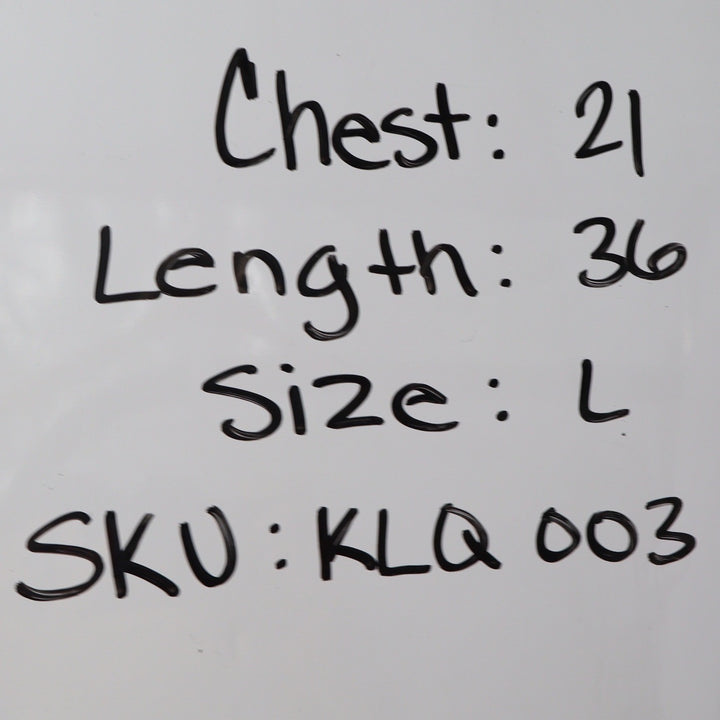 Chest: 21
Length: 36
Size: L
SKU: KLQ 003